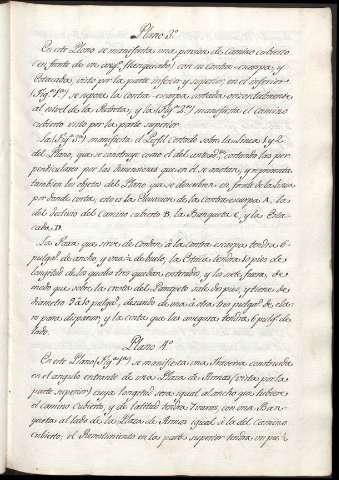 Plano 3.º
En este Plano se manifiesta una porcion de camino cubierto
en frente de un ang.º con su Contra-escarpa, y
Estacada, visto por la parte inferior y superior; en el inferior
(Fig.ª 1.ª) se supone la contra-escarpa cortada orizontalmente
al nivel de la y la (Fig.ª 2.ª) manifiesta el camino
cubierto visto por la parte superior.
La (Fig.ª 3.ª) manifiesta el Perfil cortado sobre la Linea 1 y 2
del Plano, que se construye como el del contando las per-
pendiculares por las dimensiones que en él se anotan, y representa
tambien los objetos del Plano que se descubren en frente de la Linea
por donde corta, esto es la Elevacion de la Contra-escarpa A, la
del declivio del Camino cubierto B, la Banqueta C, y la Esta-
cada D.
La que sirve de Cordon á la Contra-escarpa tendra 6
pulg.s de ancho, y una ½ de buelo; la Estaca tendra 10 pies de
longitud de los quales tres quedan enterrados, y los siete fuera, de
modo que sobre la cresta del Parapeto sale dos pies, y tiene de
diametro 9 á 10 pulg.s, dexando de una á otra tres pulg.s de cla-
ro para disparar, y la cinta que las asegura tendra 6 pulg.s de
lado.
Plano 4.º
En este Plano (Fig.ª 1.ª) se manifiesta una Traversa construida
en el angulo entrante de una Plaza de Armas (vista por la
parte superior) cuya longitud sera igual al ancho que hubiere
el camino cubierto, y de latitud tendra 7 varas, con una Ban-
queta al lado de la Plaza de Armas igual á la del Camino
cubierto; el Rematimiento en la parte superior tendra un pie ½